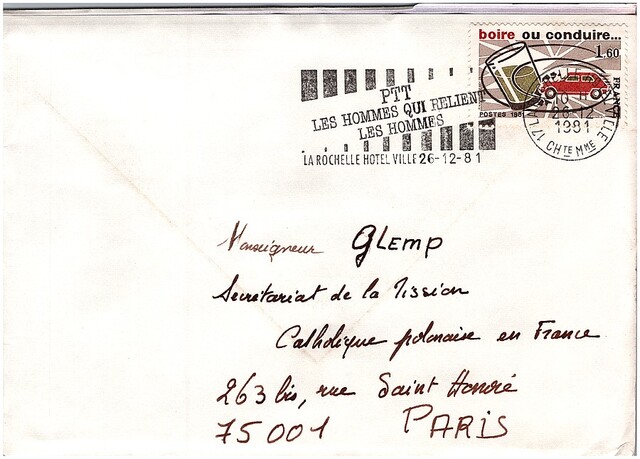 boire ou conduire...
1,60
FRANCE
POSTES 1981
PTT
LES HOMMES QUI RELIENT
LES HOMMES
LA ROCHELLE HOTEL VILLE 26-12-81
10 H
26-12
1981
CHTE MME
Monseigneur GLEMP
Secrétariat de la Mission
Catholique polonaise en France
263 bis, rue Saint Honoré
75001 PARIS